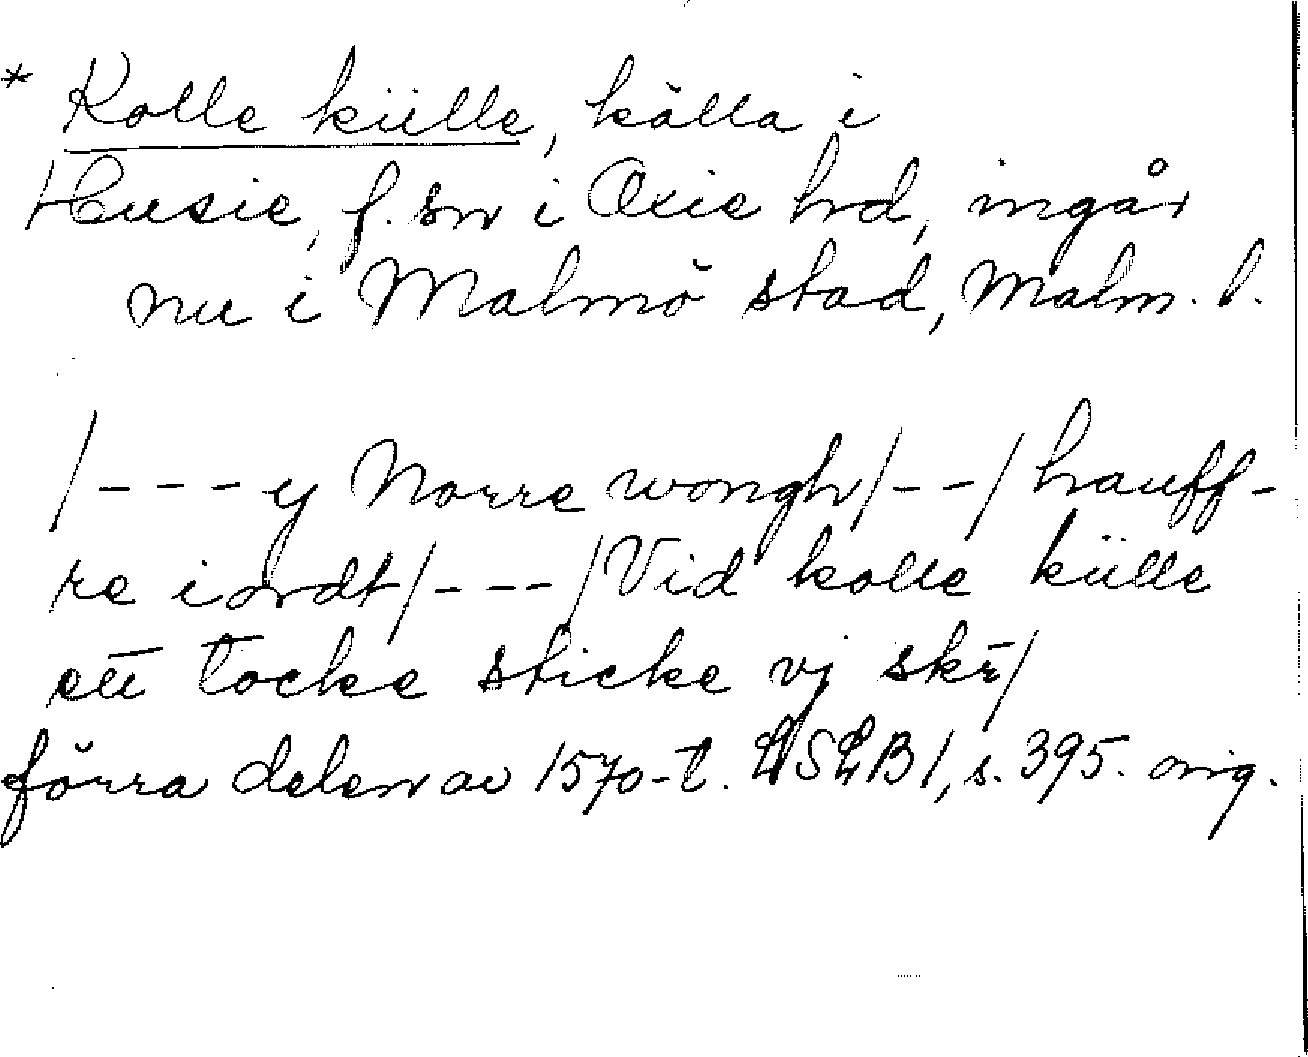 * Kolle külle, källa i
Husie, f. sn i Oxie hd, ingår
nu i Malmö stad, Malm. l.
/---y Norre wongh/--/hauff-
re iordt/---/Vid kolle külle
ett tocke sticke vj skr/
förra delen av 1570-t. LSLB1, s. 395. orig.